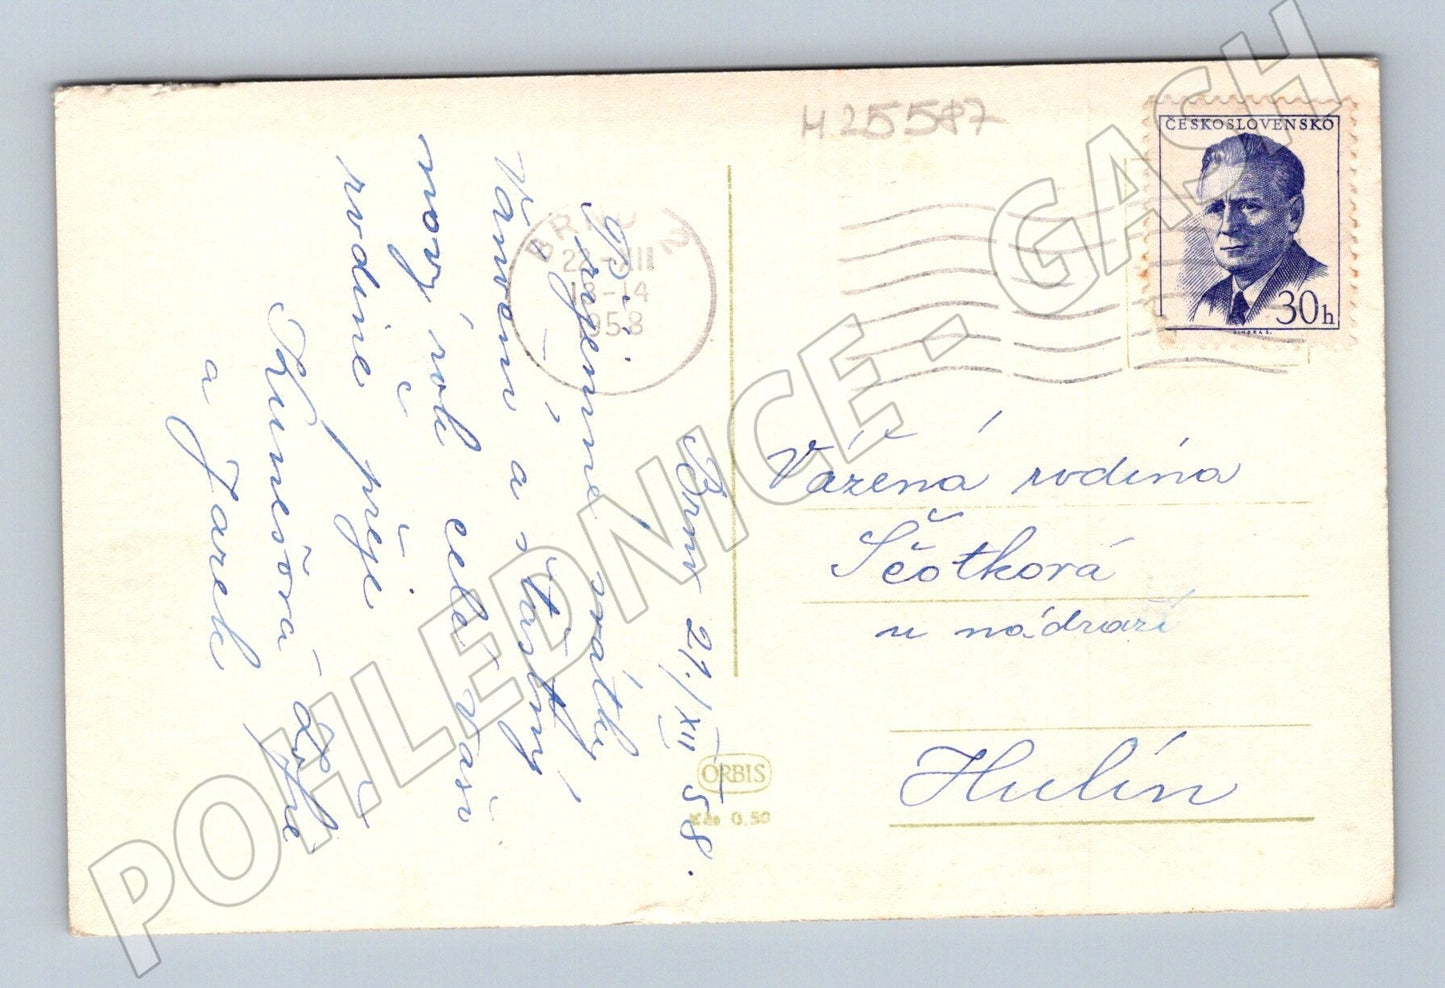 H 25587
ČESKOSLOVENSKO
30h
BRNO 2
22-XII
13-14
1958
Brno 21./XII 58.
Příjemné svátky
Vánoční a šťastný
nový rok celé Vaší
rodině přeje
a Jarek
Vážená rodina
Ščotková
u nádraží
Hulín
ORBIS
Kčs 0,50
POHLEDNICE - GASH